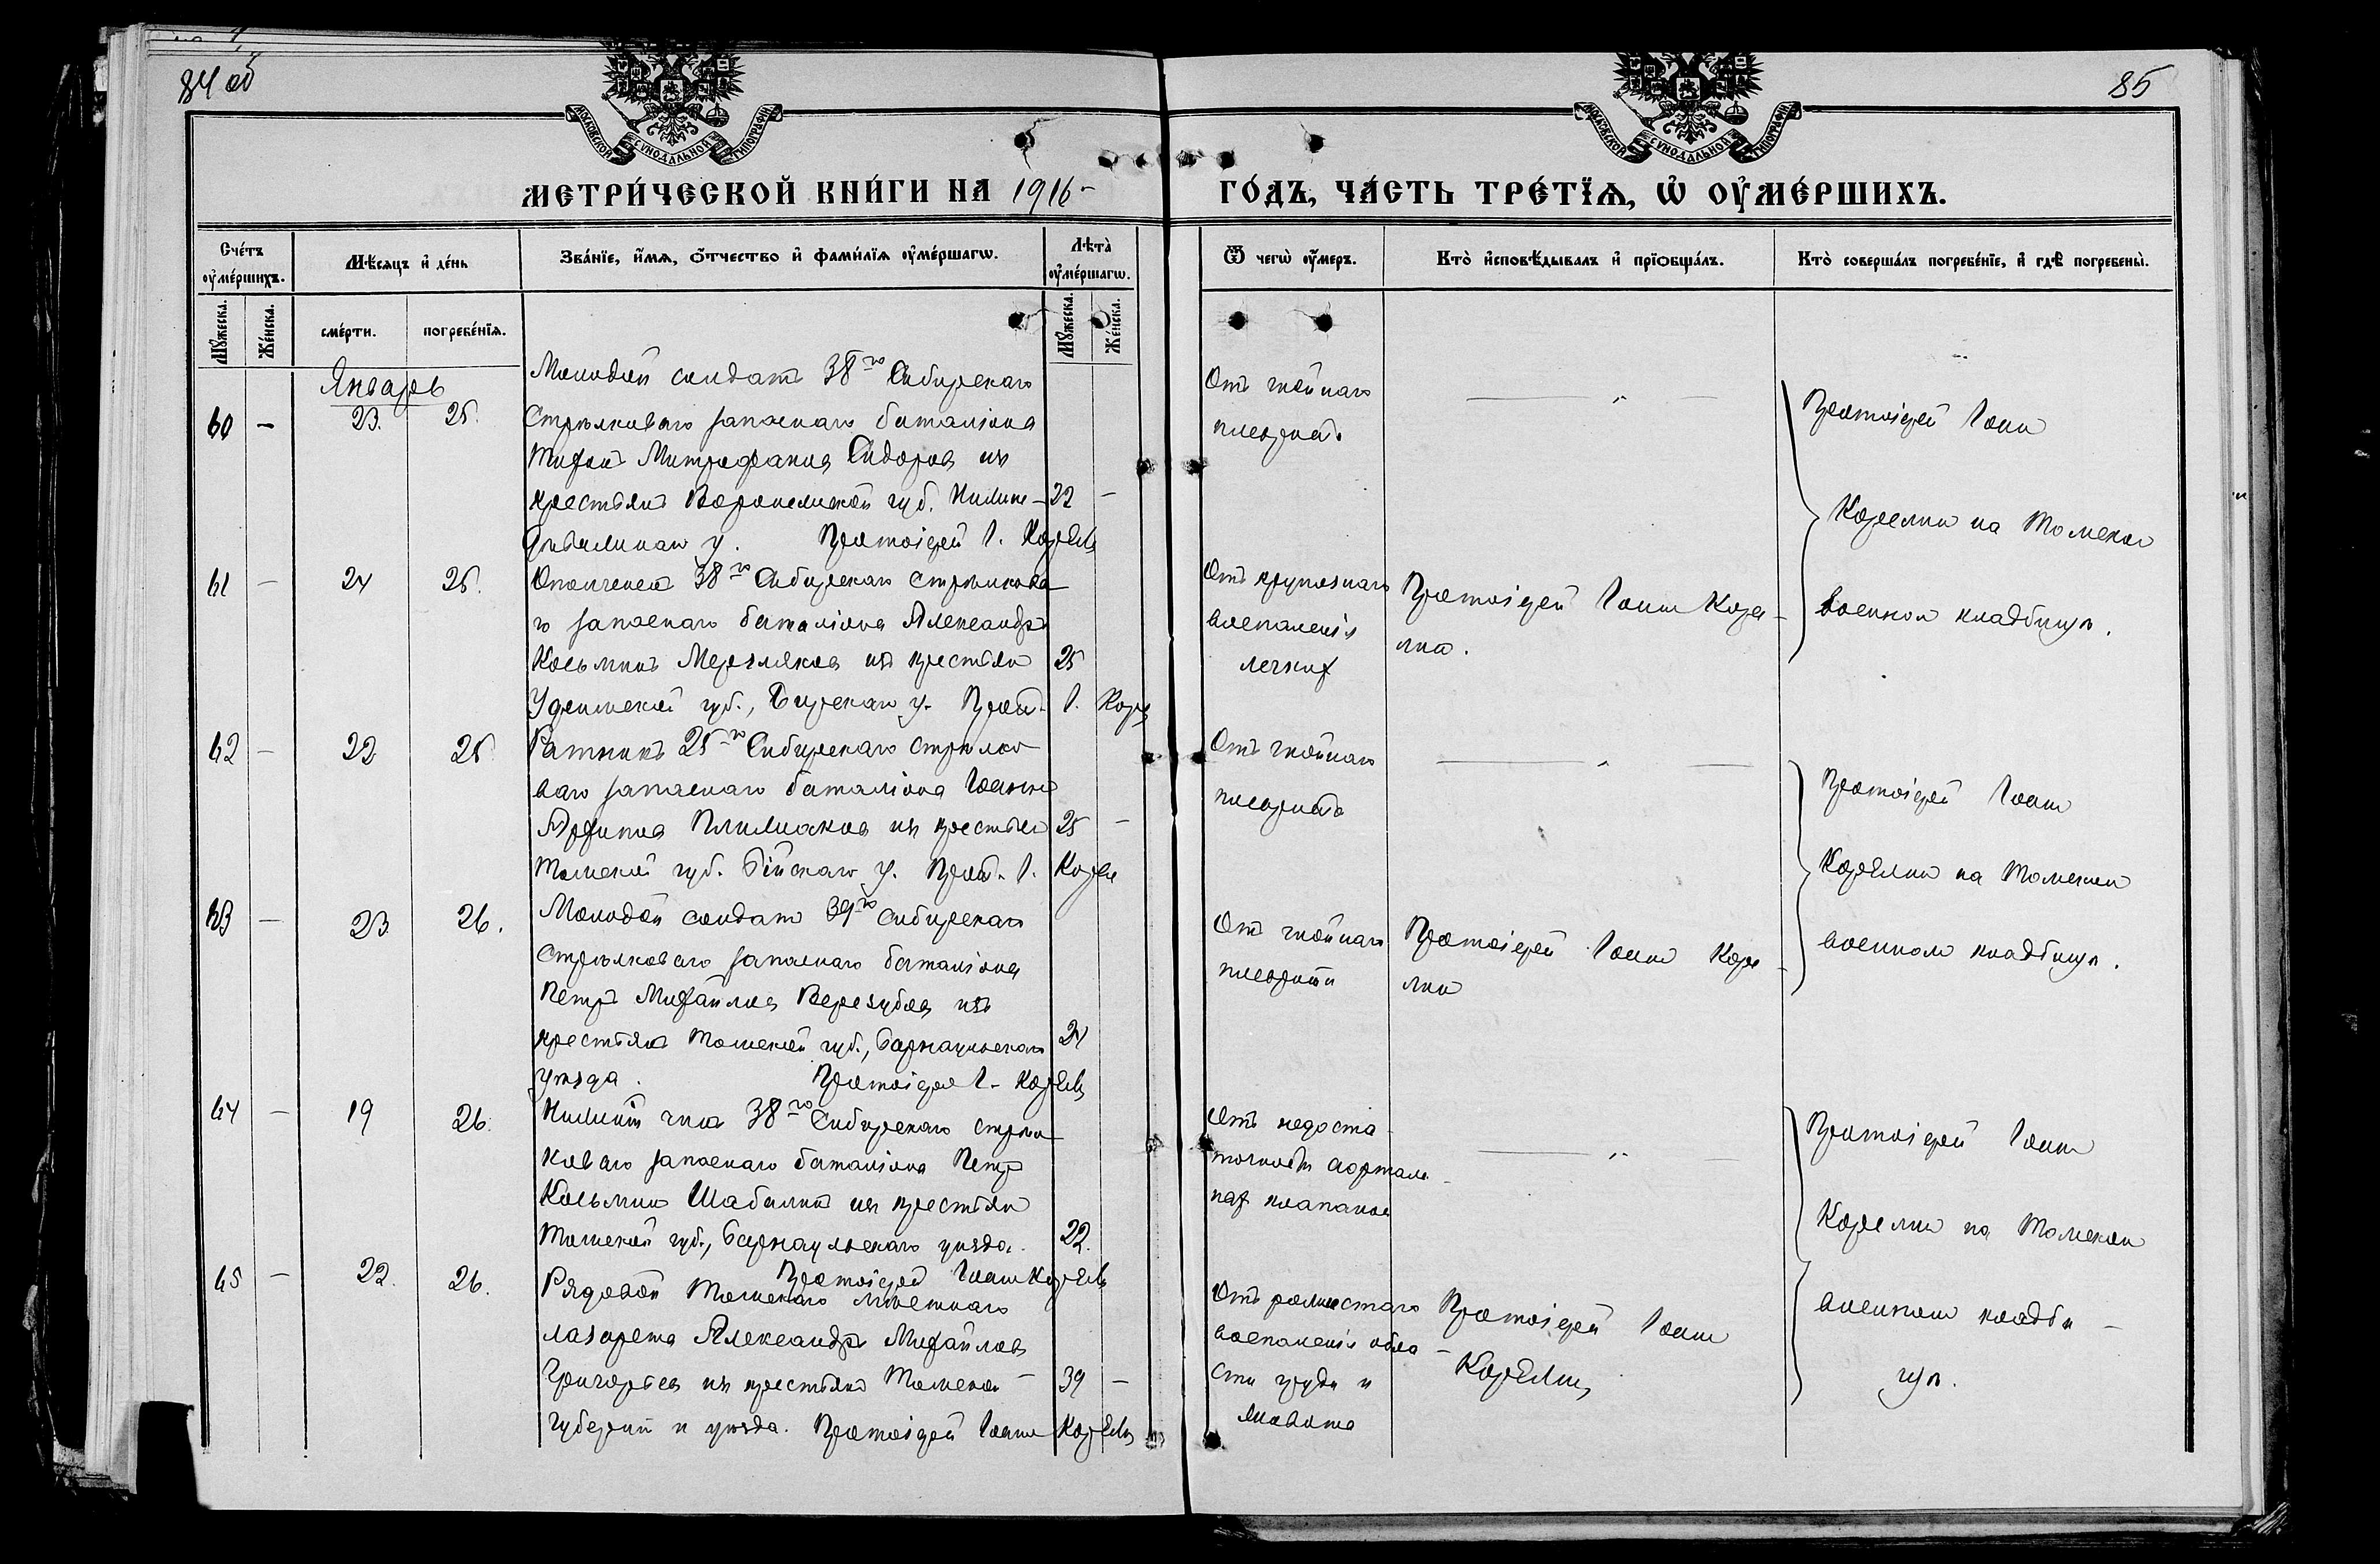 84 об
85
МОСКОВСКОЙ СУНОДАЛЬНОЙ ТИПОГРАФІИ
МОСКОВСКОЙ СУНОДАЛЬНОЙ ТИПОГРАФІИ
МЕТРИ́ЧЕСКОЙ КНИ́ГИ НА 1916 ГО́ДЪ, ЧА́СТЬ ТРЕ́ТЇѦ, Ѡ҆ ОУ҆МЕ́РШИХЪ.
Сче́тъ оу҆ме́ршихъ.
Мѣ́сяцъ и҆ де́нь
Зва́нїе, и҆́мѧ, ѻ҆́тчество и҆ фами́лїѧ оу҆ме́ршагѡ.
Лѣта̀ оу҆ме́ршагѡ.
Ѿ чегѡ̀ оу҆́меръ.
Кто̀ и҆сповѣ́дывалъ и҆ прїѻбща́лъ.
Кто̀ соверша́лъ погребе́нїе, и҆ гдѣ̀ погребены̀.
Мꙋ́жеска.
Же́нска.
сме́рти.
погребе́нїѧ.
Мꙋ́жеска.
Же́нска.
Январь
60 - 23. 25.
Молодой солдатъ 38го Сибирскаго
Стрѣлковаго запаснаго баталіона
Тихонъ Митрофановъ Сидоровъ изъ
крестьянъ Воронежской губ. Нижне- 22 -
дѣвицкаго у. Протоіерей І. Корелинъ
Отъ гнойнаго
плеврита
Протоіерей Іоаннъ
Корелинъ на Томскомъ
военномъ кладбищѣ.
61 - 24 25.
Ополченецъ 38го Сибирскаго стрѣлкова-
го запаснаго баталіона Александръ
Косьминъ Мерзляковъ изъ крестьянъ 25
Уфимской губ., Бирскаго у. Прот. І. Корел
Отъ крупознаго
воспаленія
легкихъ
Протоіерей Іоаннъ Коре-
линъ.
62 - 22 25
Ратникъ 25го Сибирскаго стрѣлко-
ваго запаснаго баталіона Іоаннъ
изъ крестьянъ 25 -
Томской губ. Бійскаго у. Прот. І. Корел
Отъ гнойнаго
плеврита
Протоіерей Іоаннъ
Корелинъ на Томскомъ
военномъ кладбищѣ.
63 - 23. 26.
Молодой солдатъ 39го Сибирскаго
Стрѣлковаго запаснаго баталіона
Петръ Михайловъ Верезубовъ изъ
крестьянъ Томской губ., Барнаульскаго 21
уѣзда. Протоіерей І. Корелинъ
Отъ гнойнаго
плеврита
Протоіерей Іоаннъ Коре-
линъ
64 - 19 26.
Нижній чинъ 38го Сибирскаго стрѣл-
коваго запаснаго баталіона Петръ
Косьминъ Шабалинъ изъ крестьянъ
Томской губ., Барнаульскаго уѣзда. 22.
Протоіерей Іоаннъ Корелинъ
Отъ недоста-
точности аорталь-
ныхъ клапановъ
Протоіерей Іоаннъ
Корелинъ на Томскомъ
военномъ кладби-
щѣ.
65 - 22. 26.
Рядовой Томскаго мѣстнаго
лазарета Александръ Михайловъ
Григорьевъ изъ крестьянъ Томской 39 -
губерніи и уѣзда. Протоіерей Іоаннъ Корелинъ
Отъ рожистаго
воспаленія обла-
сти груди и
живота
Протоіерей Іоаннъ
Корелинъ